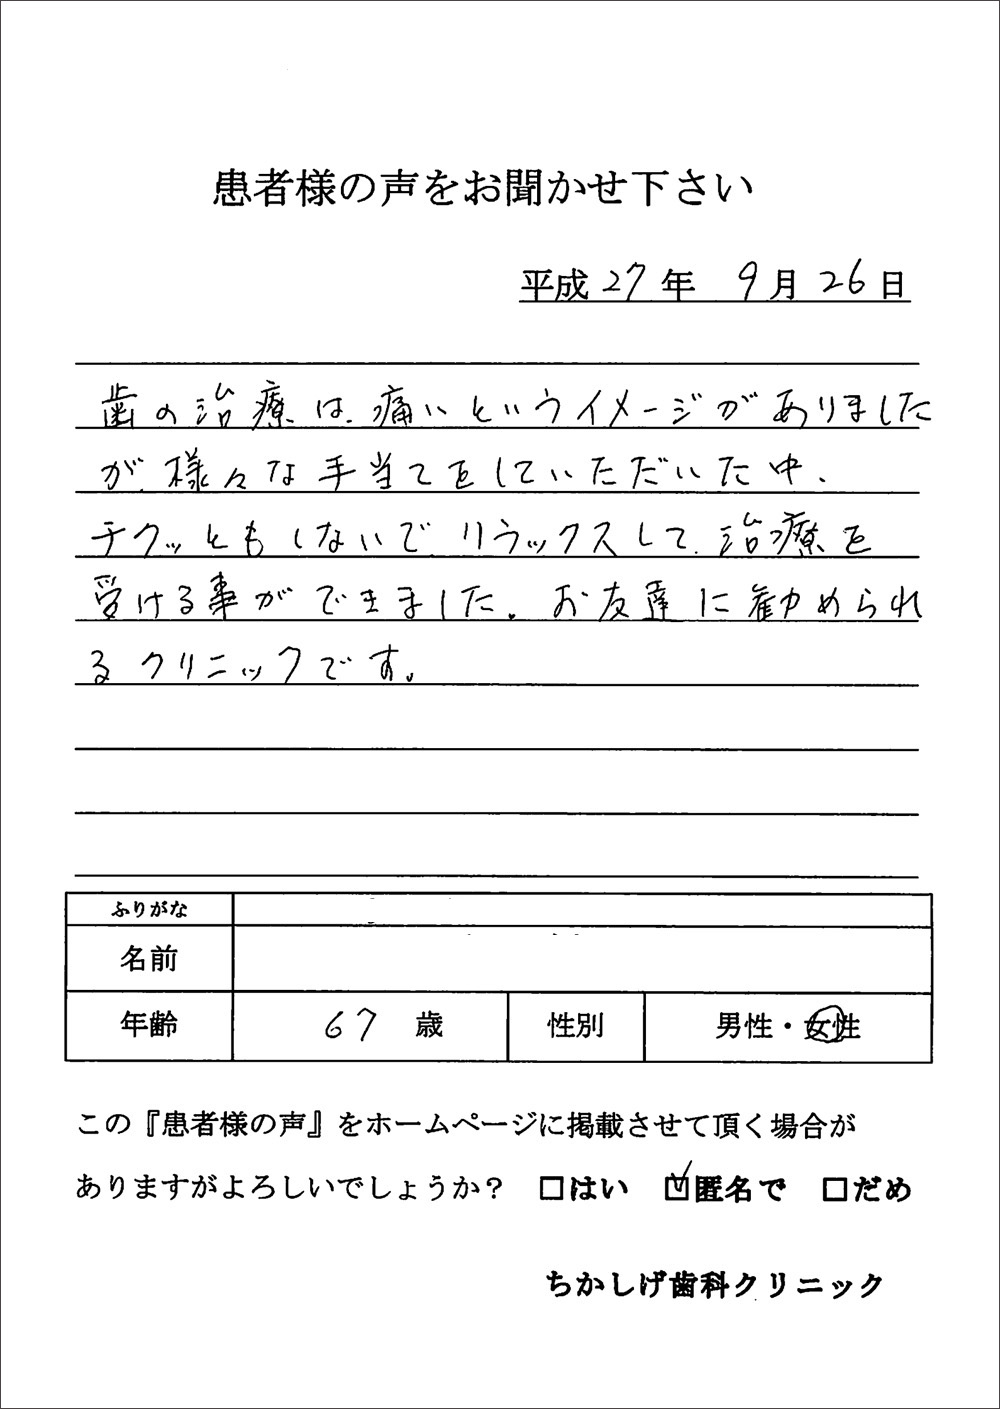 患者様の声をお聞かせ下さい
平成27年 9月26日
歯の治療は、痛いというイメージがありました
が、様々な手当てをしていただいた中、
チクッともしないで、リラックスして、治療を
受ける事ができました。お友達に勧められ
るクリニックです。
ふりがな
名前
年齢 67 歳 性別 男性・女性
この『患者様の声』をホームページに掲載させて頂く場合が
ありますがよろしいでしょうか? □はい ☑匿名で □だめ
ちかしげ歯科クリニック